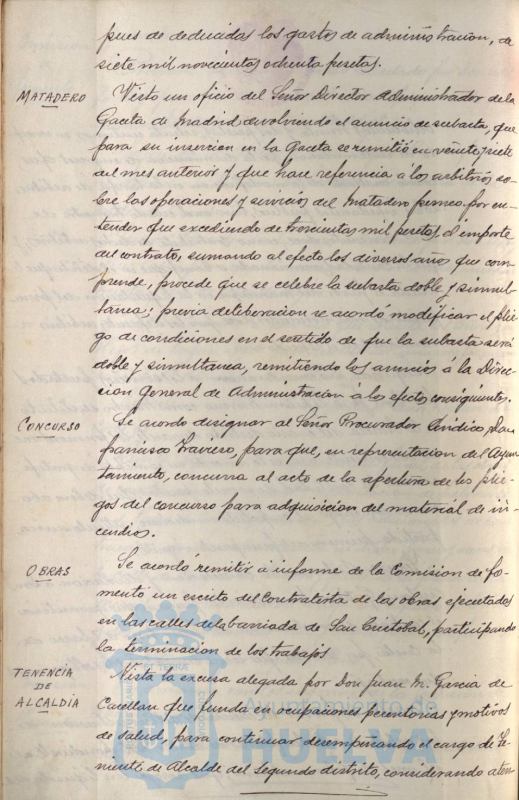 pues de deducidos los gastos de administracion, de
siete mil novecientas ochenta pesetas.
MATADERO
Visto un oficio del Señor Director Administrador de la
Gaceta de Madrid devolviendo el anuncio de subasta, que
para su insercion en la Gaceta se remitió en veinte y siete
del mes anterior y que hace referencia á los arbitrios so-
bre las operaciones y servicios del Matadero publico por en-
tender que excediendo de trescientas mil pesetas, el importe
del contrato, sumando al efecto los diversos años que com-
prende, procede que se celebre la subasta doble y simul-
tanea; previa deliberacion se acordó modificar el plie-
go de condiciones en el sentido de que la subasta será
doble y simultanea, remitiendo los anuncios á la Direc-
cion General de Administracion á los efectos consiguientes.
CONCURSO
Se acordo designar al Señor Procurador Sindico, Don
Francisco Travieso, para que, en representacion del Ayun-
tamiento, concurra al acto de la apertura de los plie-
gos del concurso para adquisicion del material de in-
cendios.
OBRAS
Se acordó remitir á informe de la Comision de Fo-
mento un escrito del Contratista de las obras ejecutadas
en las calles de la barriada de San Cristobal, participando
la terminacion de los trabajos
TENENCIA
DE
ALCALDÍA
Vista la excusa alegada por Don Juan M. Garcia de
que funda en ocupaciones perentorias y motivos
de salud, para continuar desempeñando el cargo de Te-
niente de Alcalde del Segundo distrito, considerando aten-
Ayuntamiento de
HUELVA